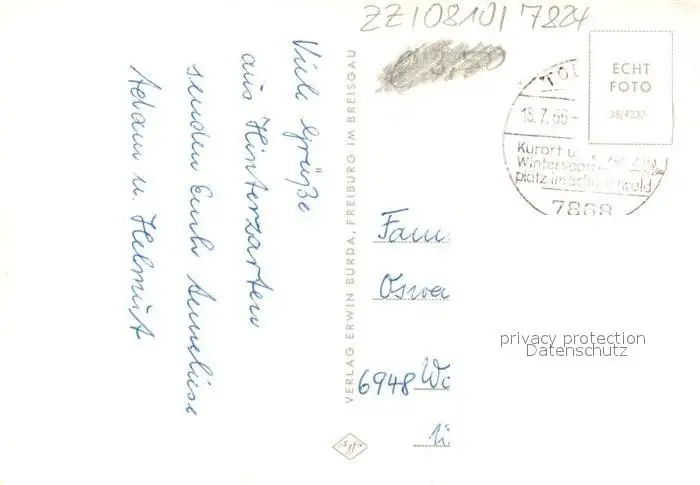 Viele Grüße
aus Hinterzarten
senden Euch Anneliese
Adam u. Helmut
VERLAG ERWIN BURDA, FREIBURG IM BREISGAU
ZZ/0810/7824
ECHT
FOTO
38/4232
TOD
18.7.66-
Kurort u.
Wintersport-
platz im Schwarzwald
7868
Fam.
Oswa
6948 Wa
privacy protection
Datenschutz
Agfa